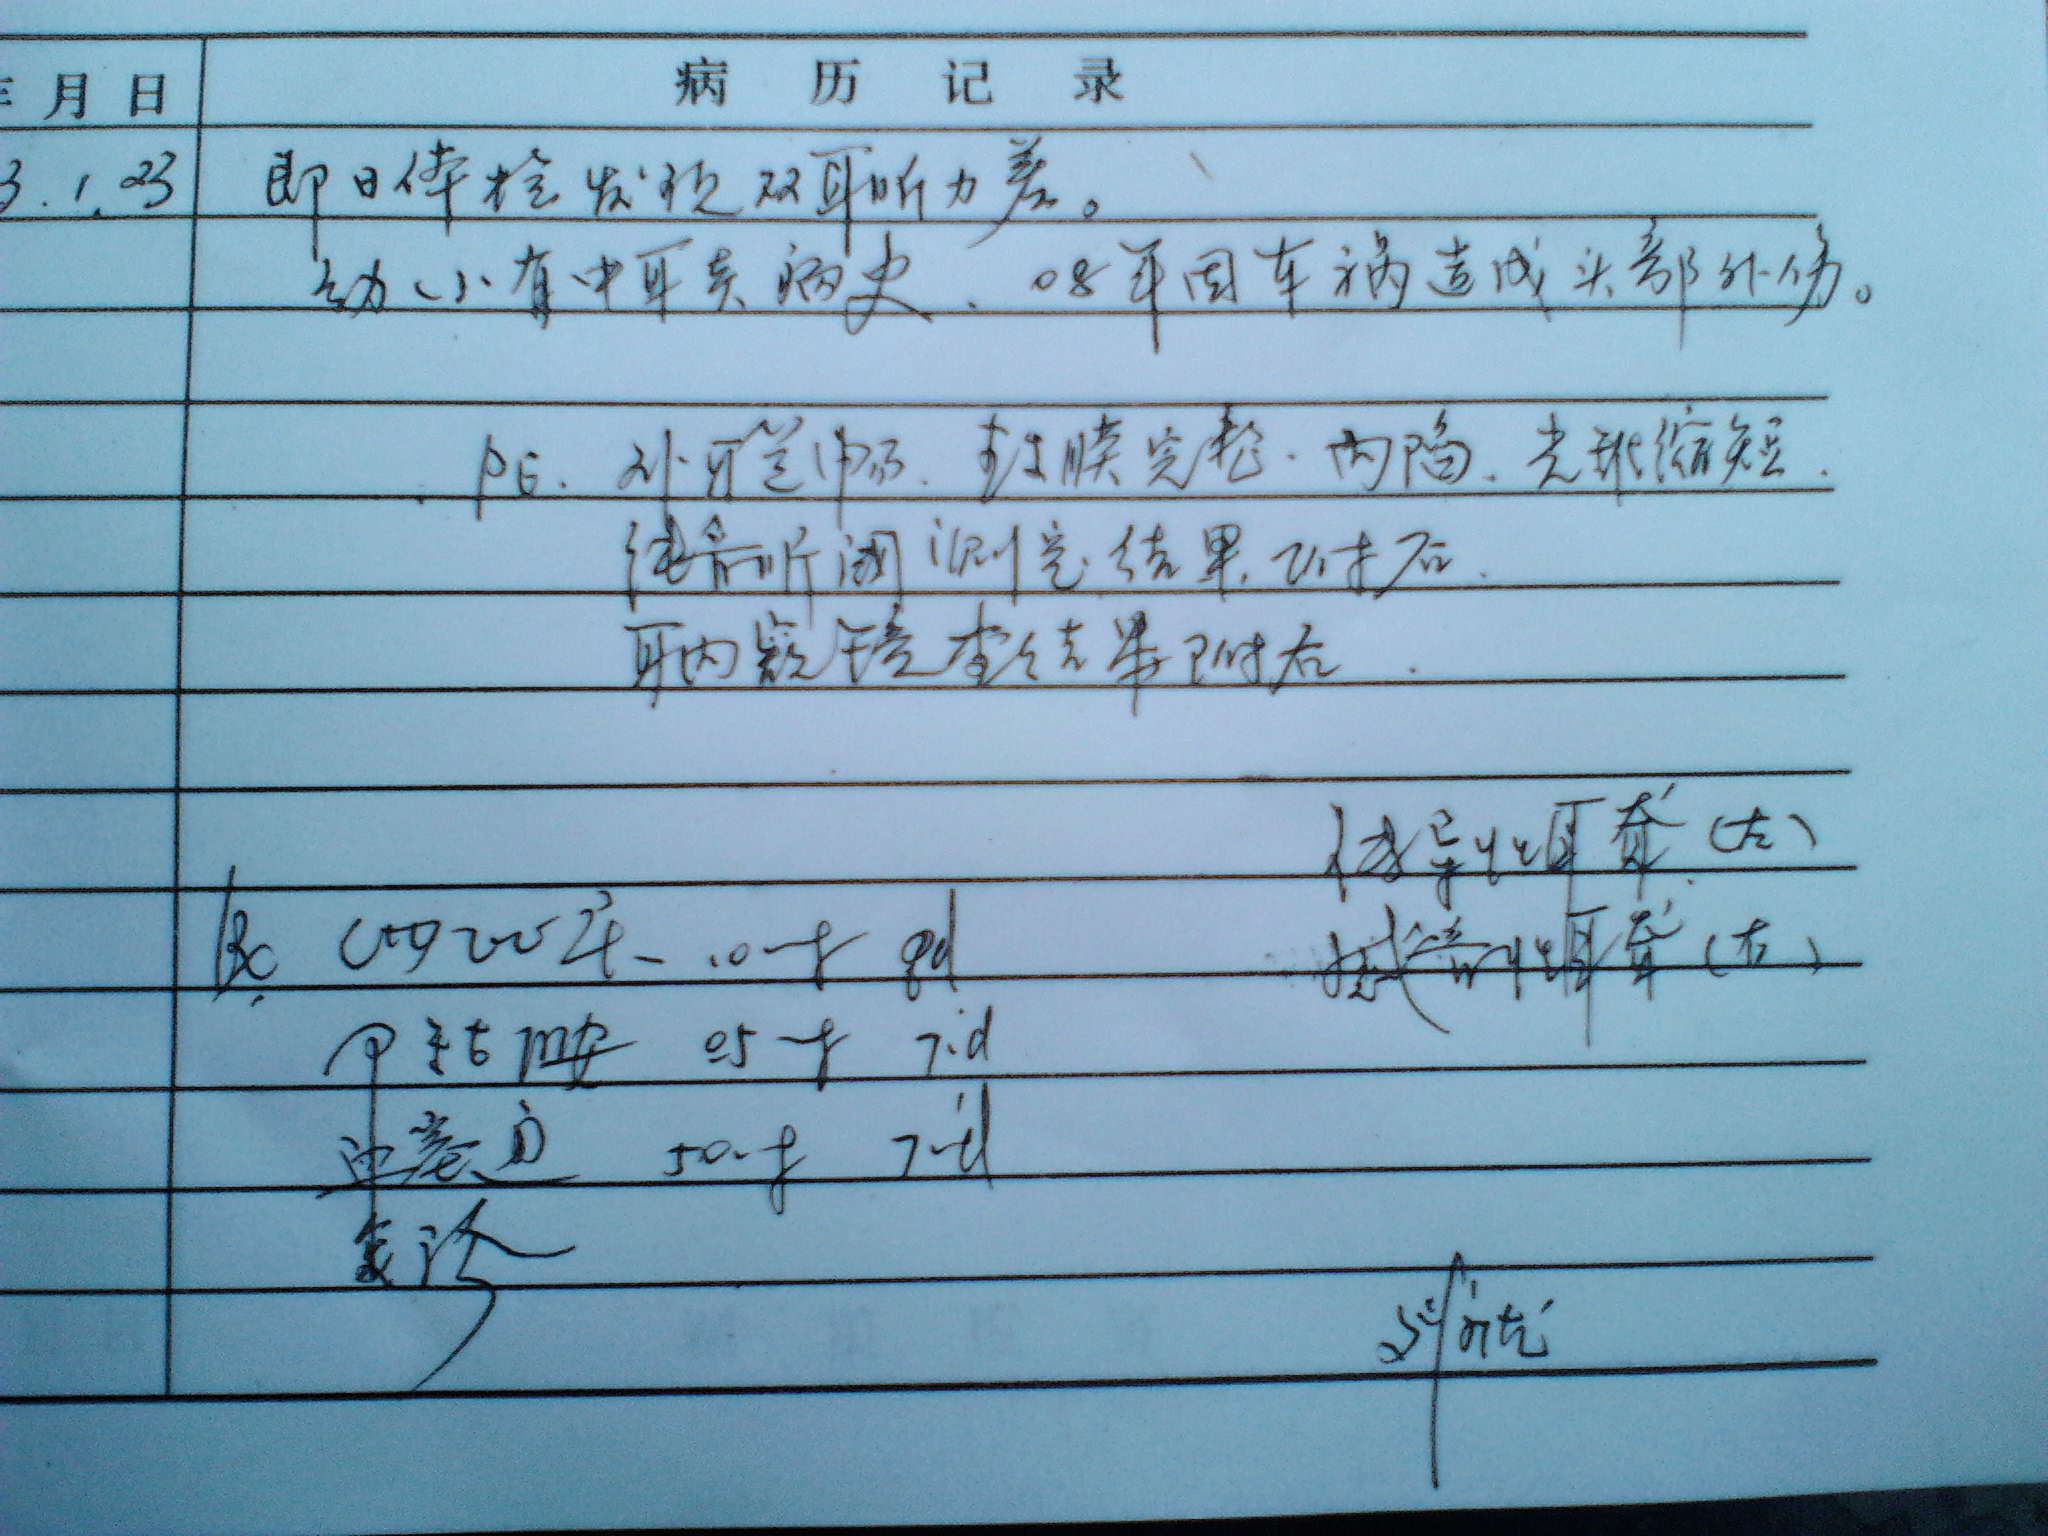 年 月 日 病 历 记 录
3.1.23 即日体检发现双耳听力差。
幼小有中耳炎病史、08年因车祸造成头部外伤。
PE. 外耳道畅. 鼓膜完整. 内陷. 光锥缩短.
听阈测定结果附后.
耳内窥镜查结果附后.
传导性耳聋(左)
Rx 10mg qd
感音性耳聋(右)
甲钴胺 0.5mg Tid
50mg Tid
复诊